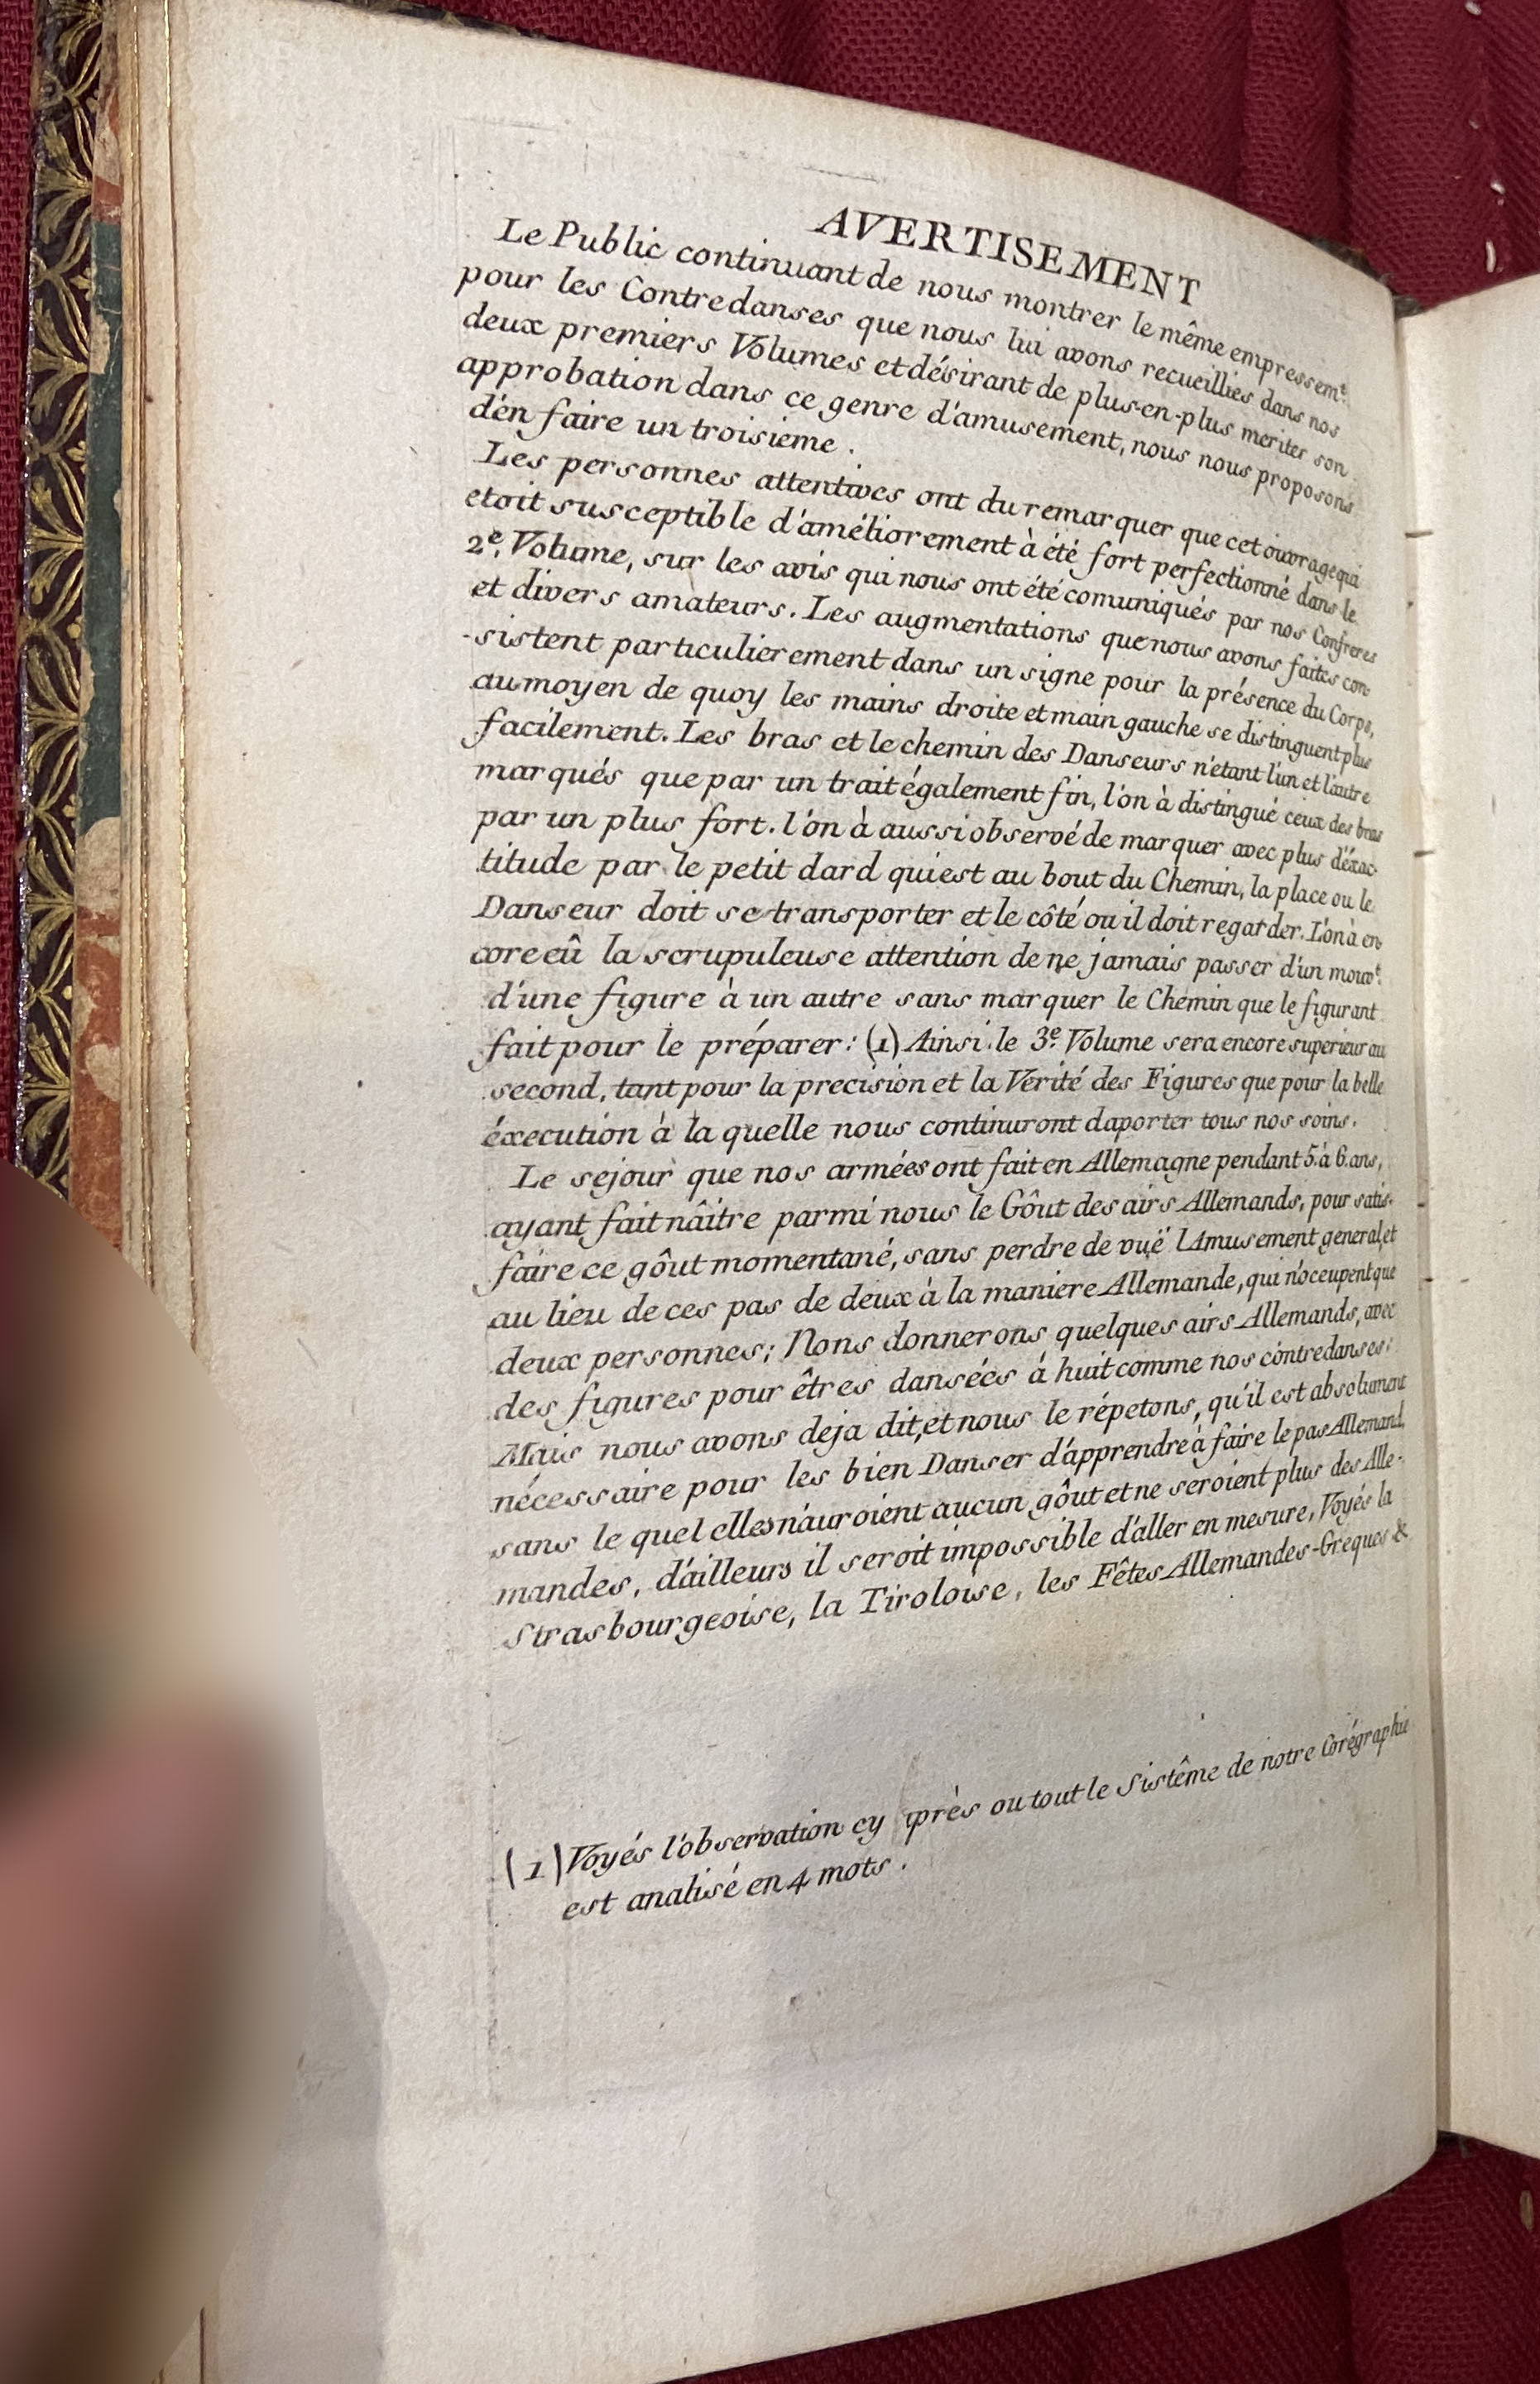 AVERTISEMENT
Le Public continuant de nous montrer le même empressem.t
pour les Contredanses que nous lui avons recueillies dans nos
deux premiers Volumes et désirant de plus-en-plus meriter son
approbation dans ce genre d'amusement, nous nous proposons
d'en faire un troisieme.
Les personnes attentives ont du remarquer que cet ouvrage qui
etoit susceptible d'améliorement à été fort perfectionné dans le
2.e Volume, sur les avis qui nous ont été comuniqués par nos Confreres
et divers amateurs. Les augmentations que nous avons faites con
-sistent particulierement dans un signe pour la présence du Corps,
au moyen de quoy les mains droite et main gauche se distinguent plus
facilement. Les bras et le chemin des Danseurs n'etant l'un et l'autre
marqués que par un trait également fin, l'on à distingué ceux des bras
par un plus fort. l'on à aussi observé de marquer avec plus d'éxac-
titude par le petit dard qui est au bout du Chemin, la place ou le
Danseur doit se transporter et le côté ou il doit regarder. L'on à en
core eû la scrupuleuse attention de ne jamais passer d'un mouv.t
d'une figure à un autre sans marquer le Chemin que le figurant
fait pour le préparer: (1) Ainsi le 3.e Volume sera encore superieur au
second, tant pour la precision et la Verité des Figures que pour la belle
éxecution à la quelle nous continuront daporter tous nos soins.
Le sejour que nos armées ont fait en Allemagne pendant 5. à 6. ans,
ayant fait nâitre parmi nous le Gôut des airs Allemands, pour satis-
faire ce gôut momentané, sans perdre de vuë l'Amusement general, et
au lieu de ces pas de deux à la maniere Allemande, qui n'oceupent que
deux personnes; Nons donnerons quelques airs Allemands, avec
des figures pour êtres dansées à huit comme nos contredanses:
Mais nous avons deja dit, et nous le répetons, qu'il est absolument
nécessaire pour les bien Danser d'apprendre à faire le pas Allemand,
sans le quel elles n'auroient aucun gôut et ne seroient plus des Alle-
mandes, d'ailleurs il seroit impossible d'aller en mesure, Voyés la
Strasbourgeoise, la Tiroloise, les Fêtes Allemandes-Greques &
(1) Voyés l'observation cy après ou tout le Sistême de notre Corégraphie
est analisé en 4 mots.